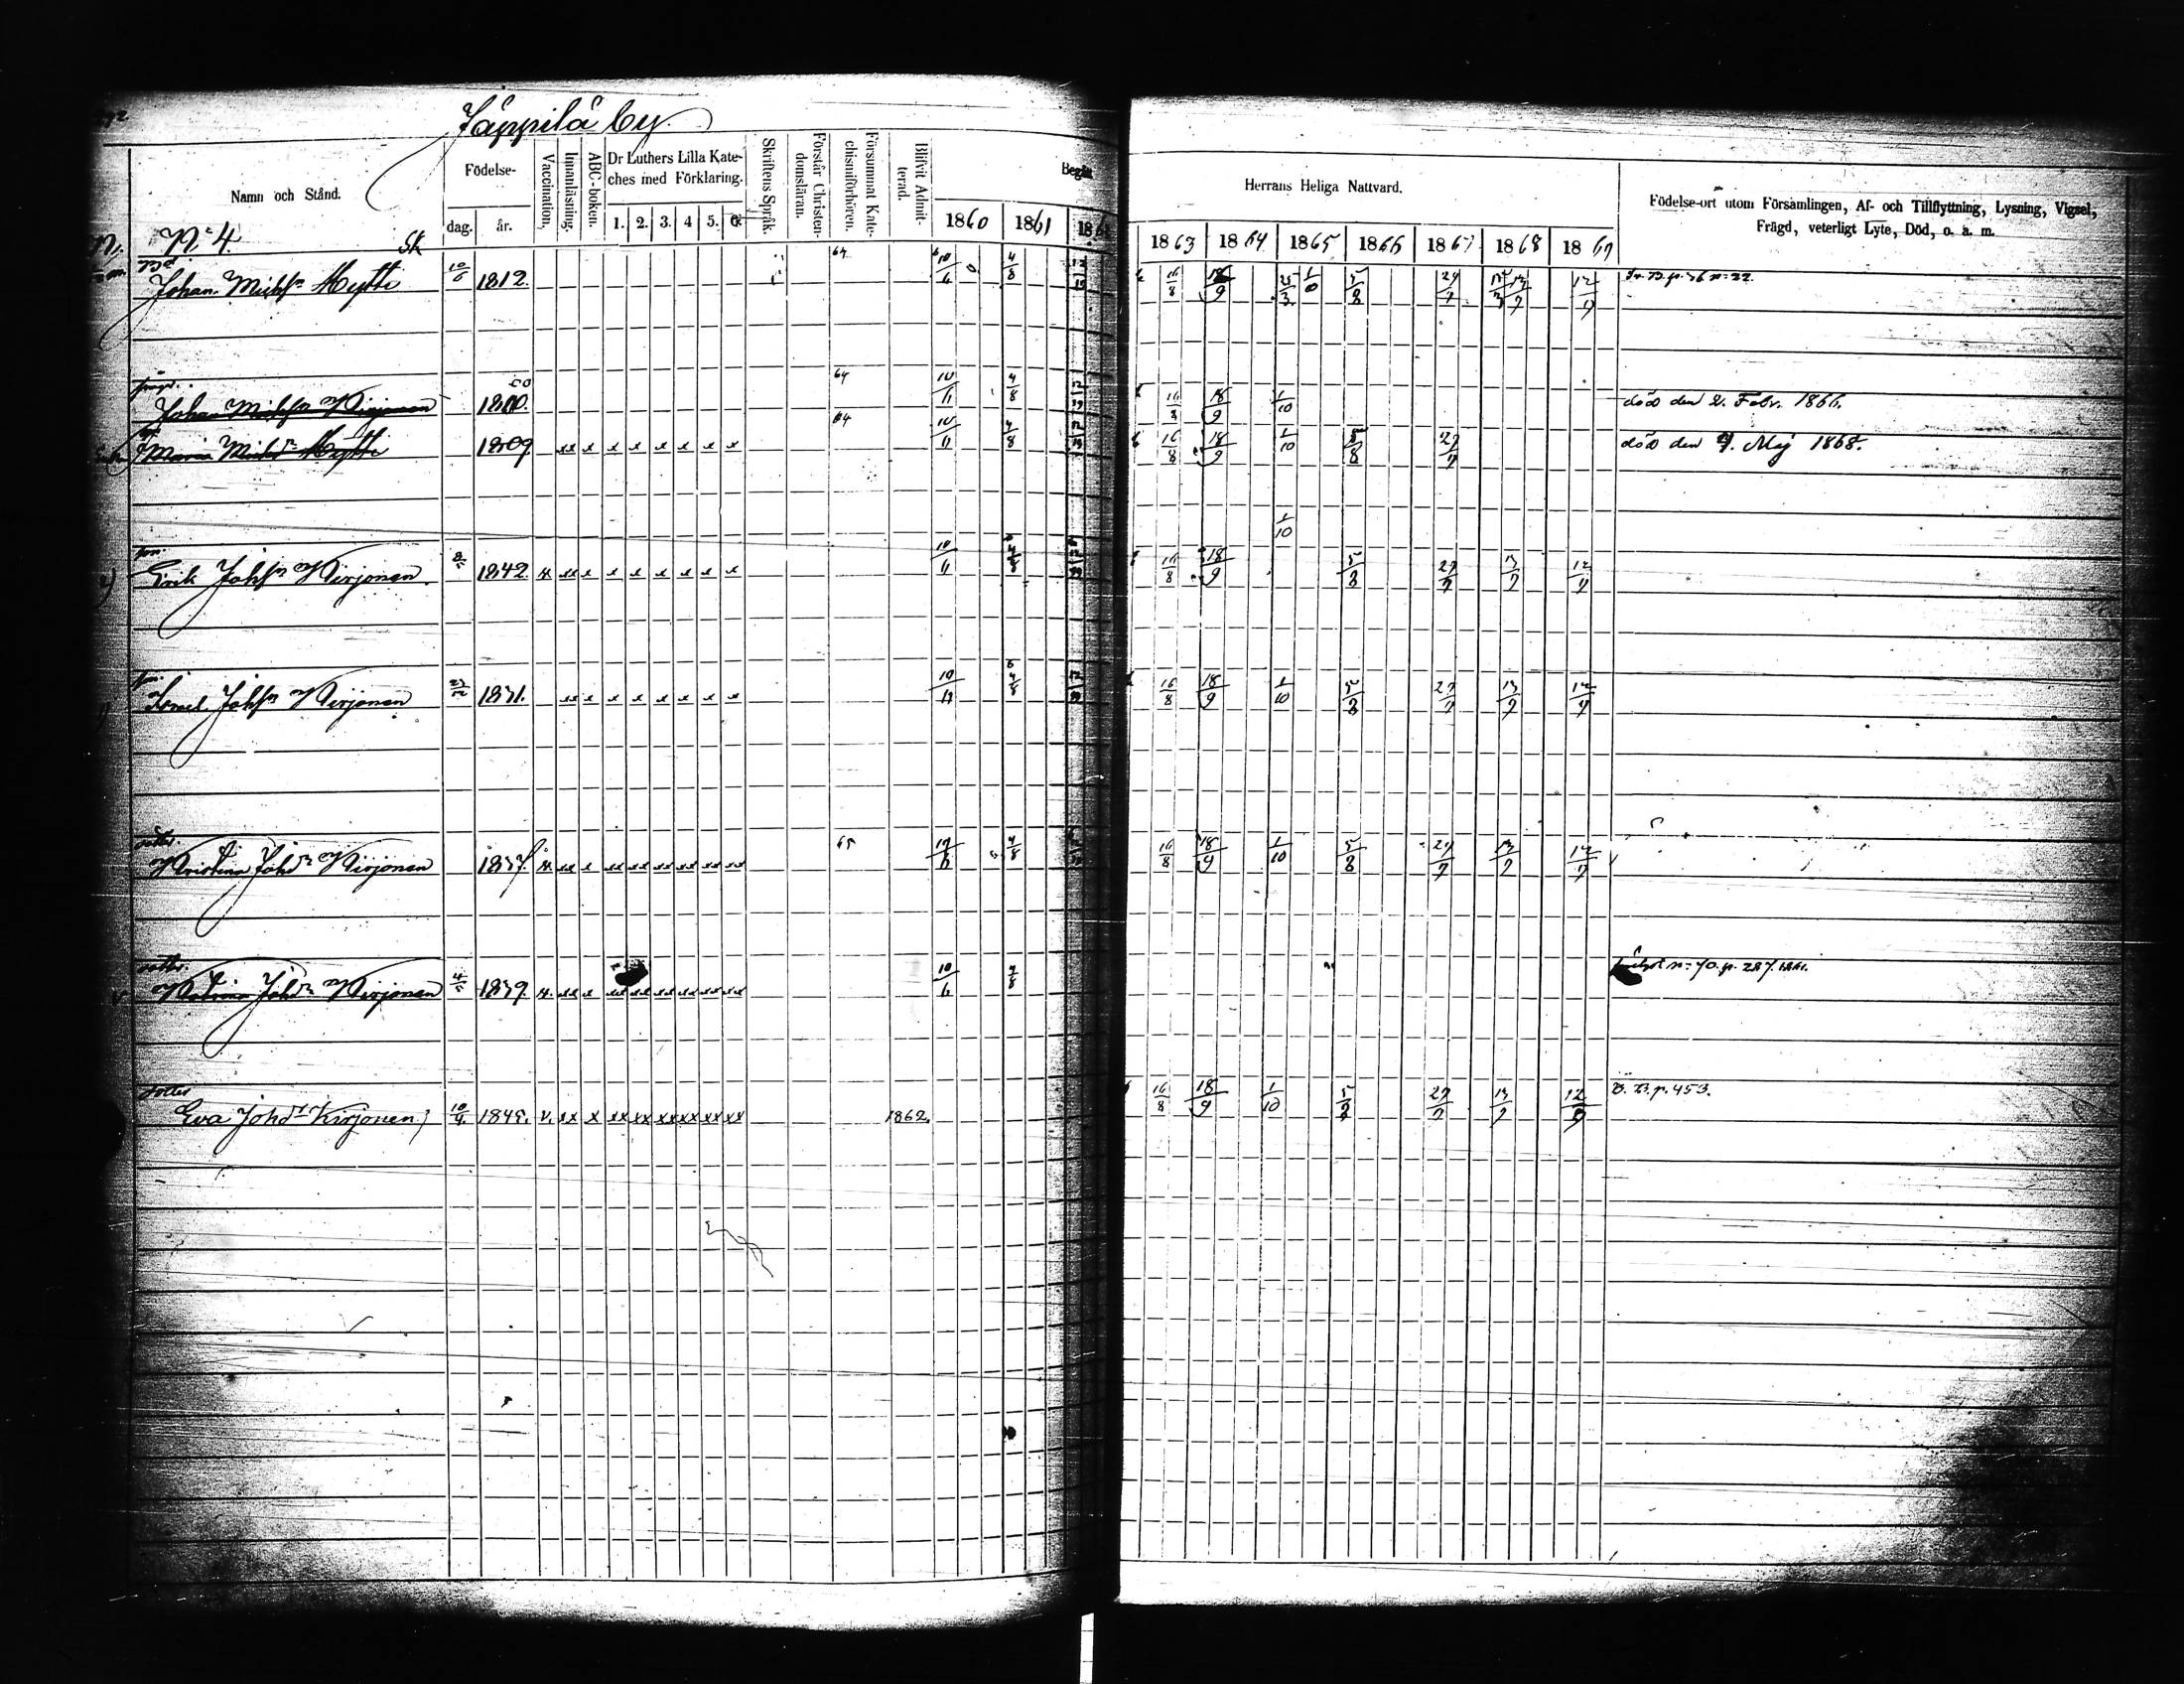 Jäppilä by.
Namn och Stånd.
Födelse-
dag.
år.
Vaccination.
Innanläsning.
ABC-boken.
Dr Luthers Lilla Kate-
ches med Förklaring.
1. 2. 3. 4 5. 6.
Skriftens Språk.
Förstår Christen-
domsläran.
Försummat Kate-
chismiförhören.
Blifvit Admit-
terad.
Begått
1860 1861
Herrans Heliga Nattvard.
1863 1864 1865 1866 1867 1868 1869
Födelse-ort utom Församlingen, Af- och Tillflyttning, Lysning, Vigsel,
Frägd, veterligt Lyte, Död, o. a. m.
N:4. Sk
64
Johan Michsn Mytti 10/6 1812. 10/6 4/8 16/8 18/9 25/3 1/10 5/8 29/7 13/7 12/7
64
Johan Michsn Kirjonen 1800. 10/6 4/8 16/8 18/9 1/10 död den 2. Febr. 1866.
64
Maria Michdr Mytti 1809 xx x x x x x x x 10/6 4/8 16/8 18/9 1/10 5/8 29/7 död den 7. Maj 1868.
1/10
son
Erik Johsn Kirjonen 1842 xx x x x x x x x 10/6 4/8 16/8 18/9 5/8 29/7 13/7 12/7
son
Johsn Kirjonen 1831. xx x x x x x x x 10/6 4/8 16/8 18/9 1/10 5/8 29/7 13/7 12/7
dotter 65
Kristina Johdr Kirjonen 1837. xx x xx xx xx xx xx xx 10/6 4/8 16/8 18/9 1/10 5/8 29/7 13/7 12/7
dotter
Johdr Kirjonen 1839. xx x xx xx xx xx xx xx 10/6 4/8 n:70. p. 287.
dotter
Eva Johdr Kirjonen 10/9. 1845. v. xx x xx xx xx xx xx xx 1862. 16/8 18/9 1/10 5/8 29/7 13/7 12/7 B. p. 453.